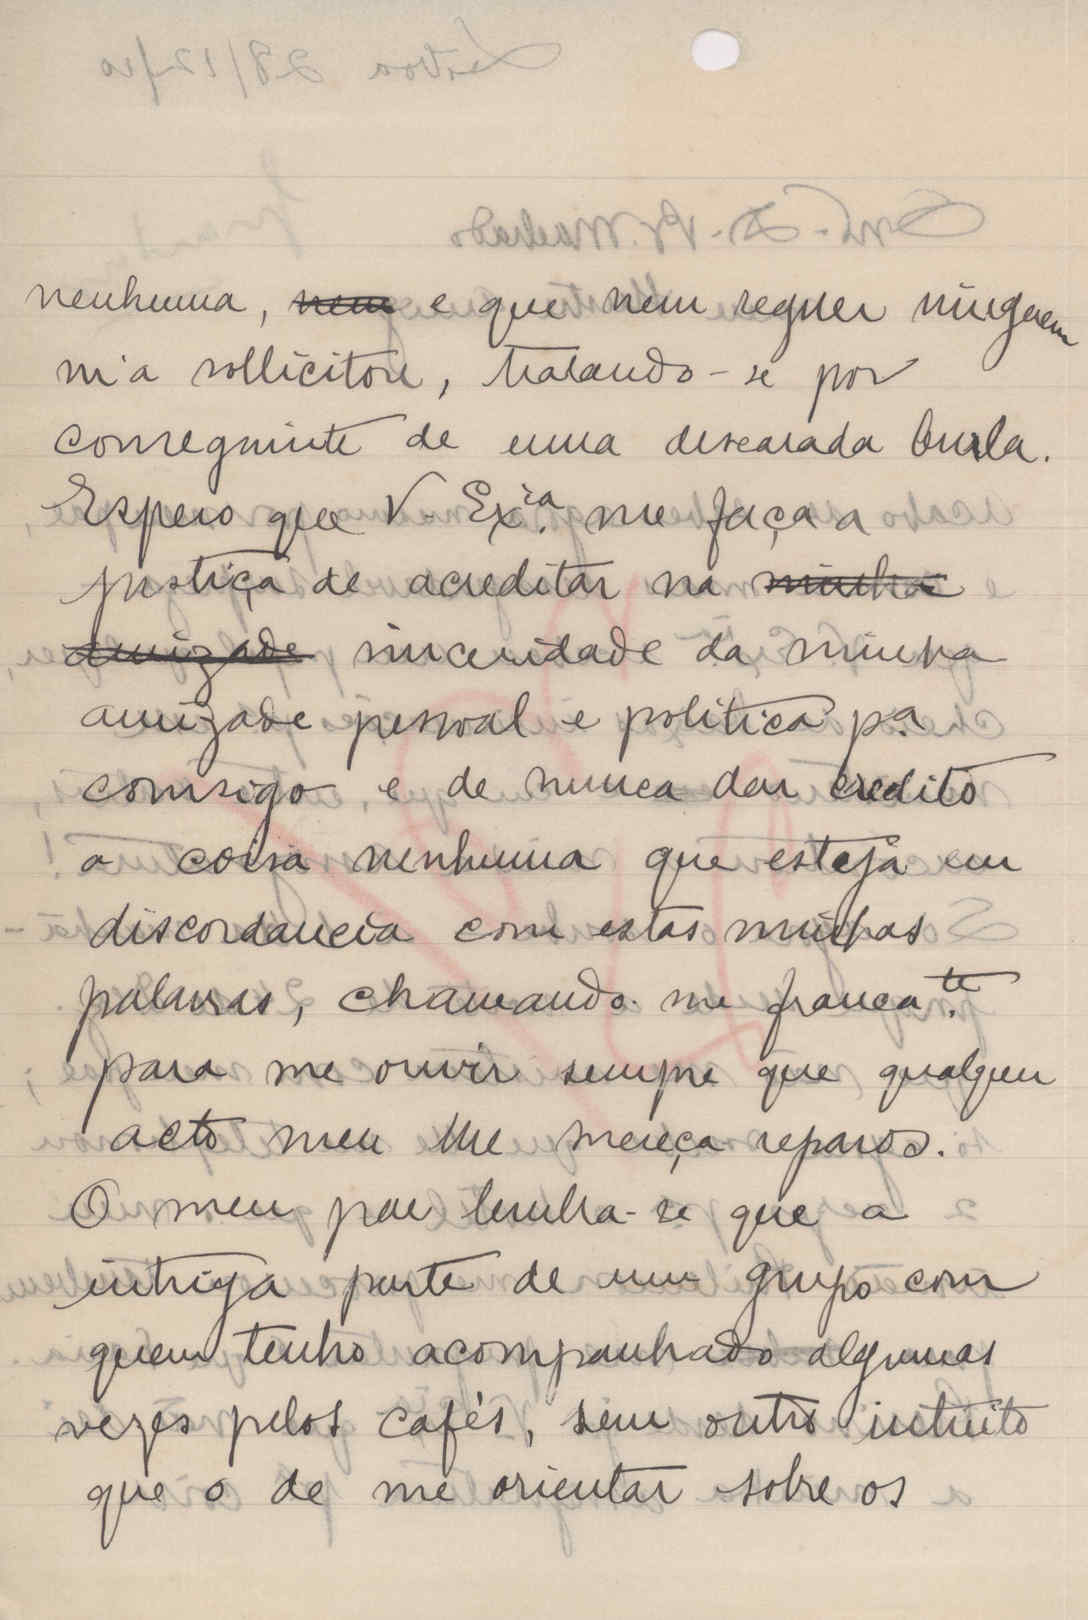 nenhuma, nem e que nem sequer ninguem
m'a sollicitou, tratando-se por
conseguinte de uma descarada burla.
Espero que V. Ex.ia me faça a
justiça de acreditar na minha
amizade sinceridade da minha
amizade pessoal e politica p.a
comsigo e de nunca dar credito
a coisa nenhuma que esteja em
discordancia com estas minhas
palavras, chamando-me franca.te
para me ouvir sempre que qualquer
acto meu lhe mereça reparos.
O meu pae lembra-se que a
intriga parte de um grupo com
quem tenho acompanhado algumas
vezes pelos cafés, sem outro intuito
que o de me orientar sobre os